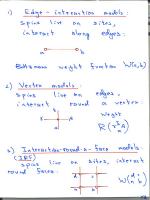 1) Edge-interaction models:
spins live on sites,
interact along edges:
a b
Boltzmann weight function W(a,b)
2) Vertex models:
spins live on edges,
interact round a vertex
Weight
3) Interaction-round-a-face models
(IRF)
spins live on sites, interact
round faces: